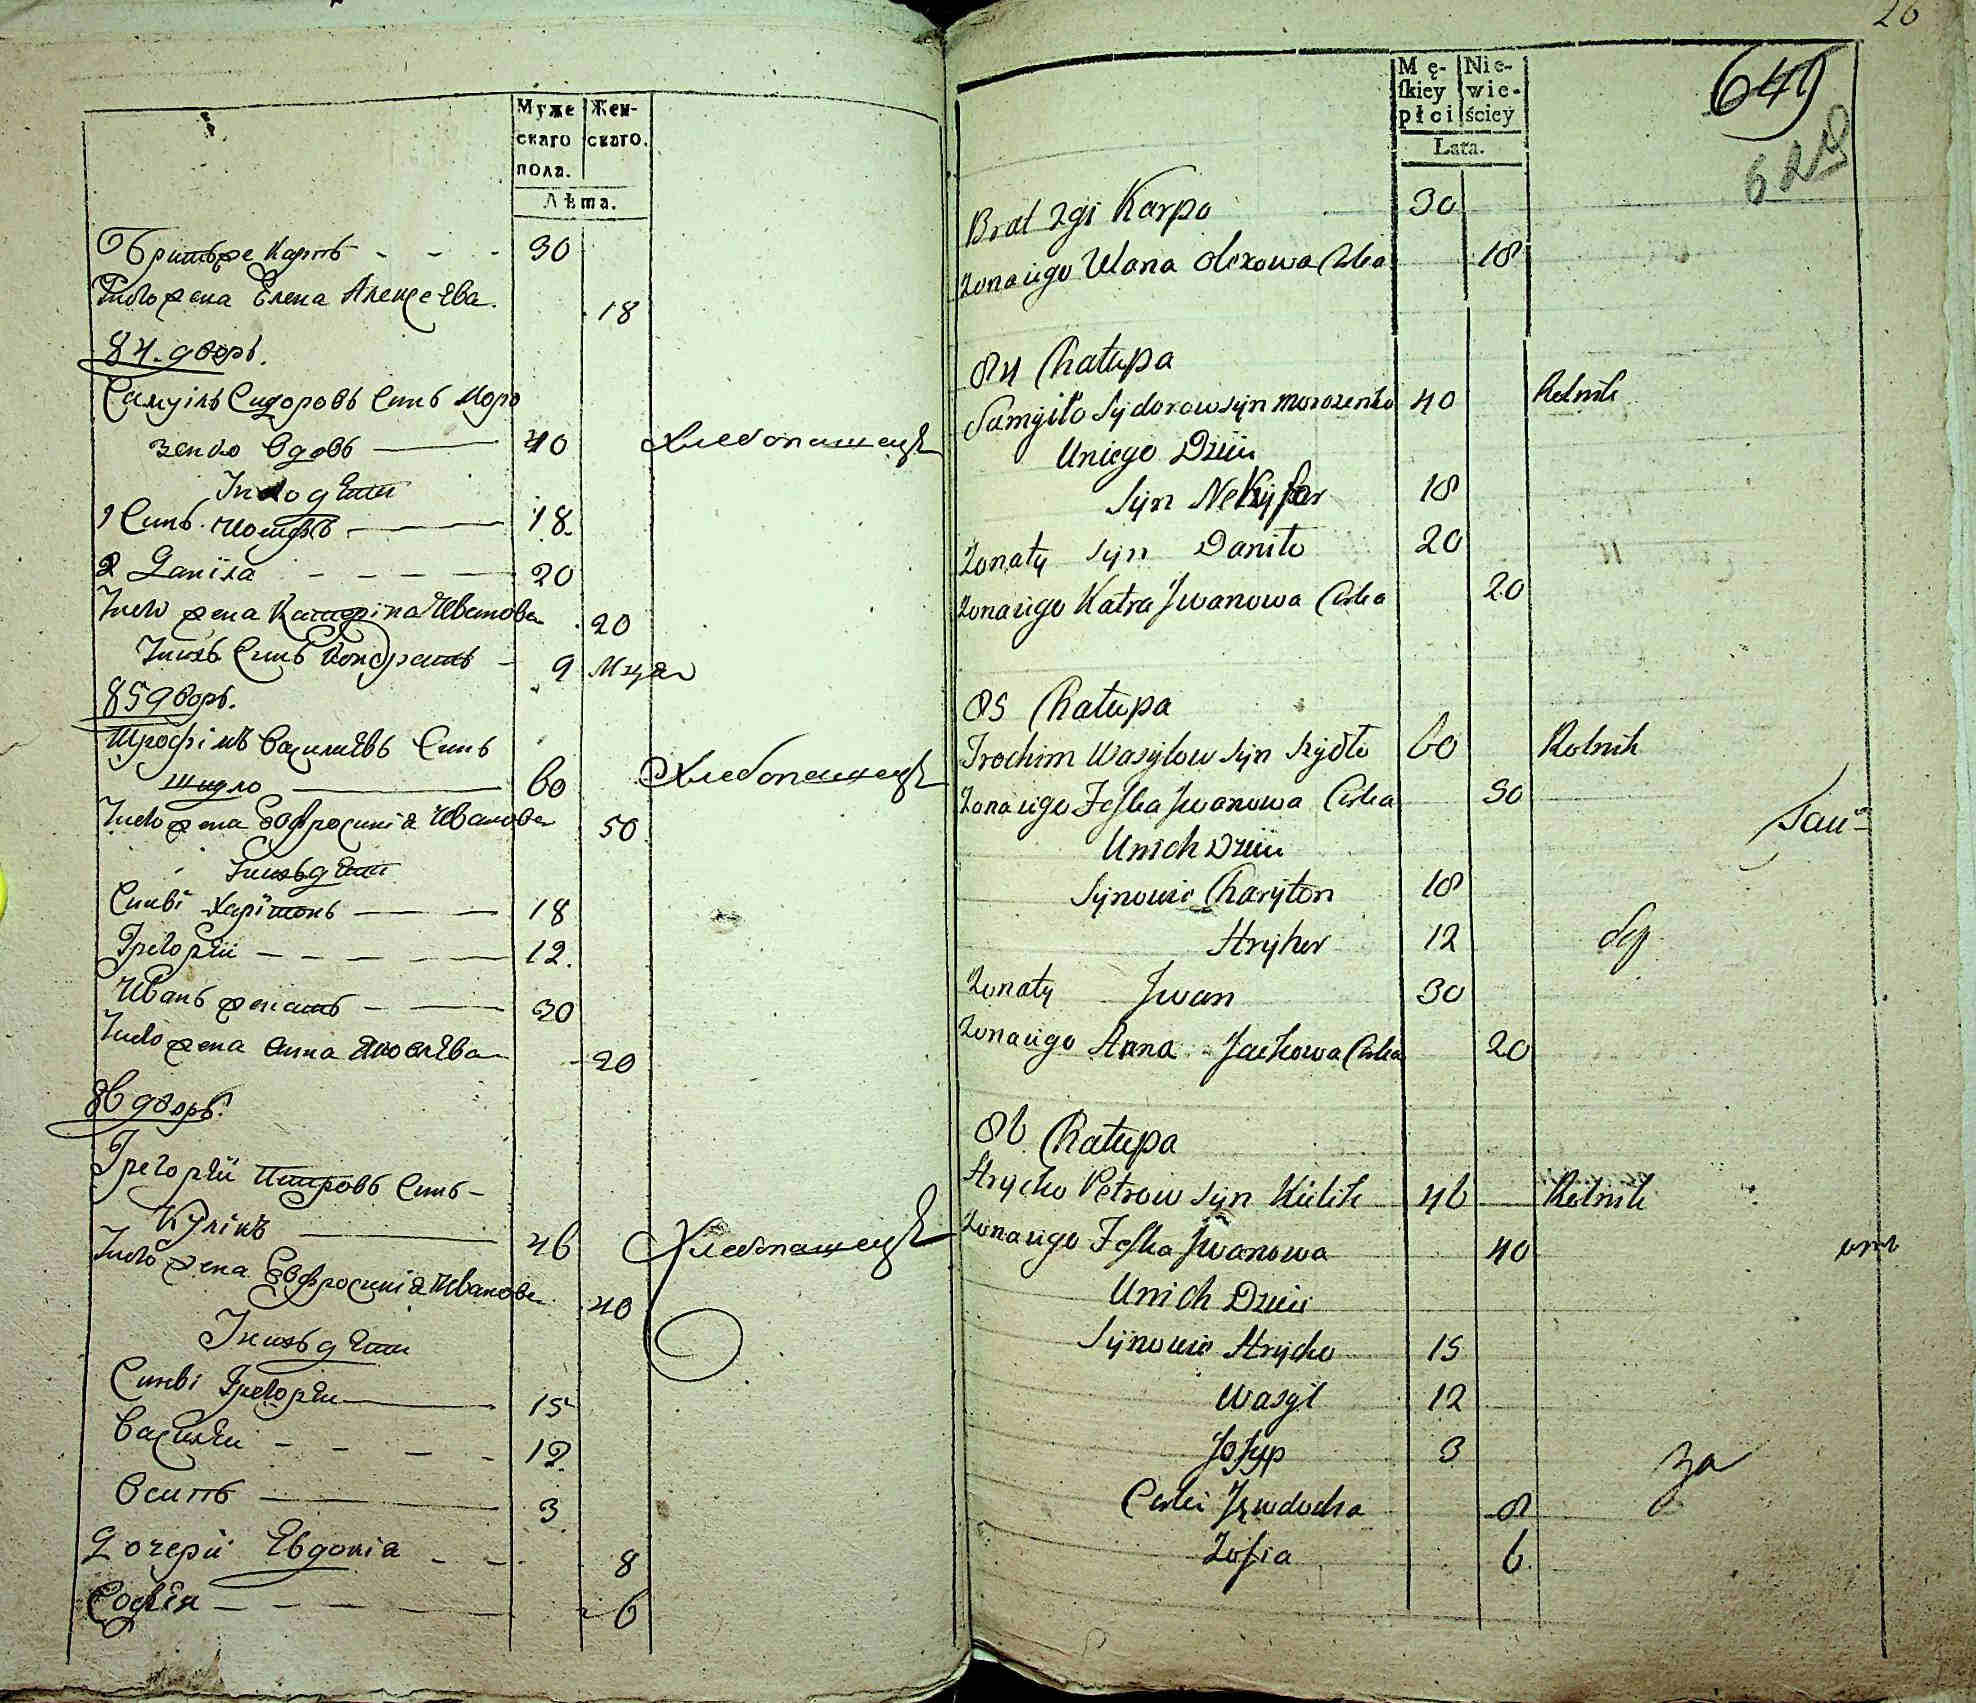 Муже
скаго
пола.
Жен-
скаго.
Лѣта.
Братъ же Карпъ - - - 30
Его жена Елена Алексеева 18
84. дворъ.
Самуилъ Сидоровъ синъ Моро
зенко вдовъ 40 Хлебопашецъ
У него дѣти
1 Синъ 18
2 Данiла - - - 20
Его жена Катерiна Иванова 20
У ихъ синъ Кондратъ - 9 Мцей
85 дворъ.
Трофiмъ Василиевъ синъ
Шидло 60 Хлебопашецъ
Его жена Евфросинiя Иванова 50
У ихъ дѣти
Синвi Харiтонъ 18
Григорѣй - - - - 12.
Иванъ женатъ - 30
Его жена Анна Яковлева 20
86 дворъ.
Григорѣй Петровъ синъ -
Кулiкъ 46 Хлебопашецъ
Его жена Евфросинiя Иванова 40
У ихъ дѣти
Синвi Григорѣй 15
Василѣй - - - - 12
Осипъ 3
Дочерѝ Евдокiя - - 8
Софѣя - - - - 6
26
Mę-
ſkiey
płci
Nie-
wie-
ściey
Lata.
649
629
Brat żgi Karpo 30
Zona iigo Ulana Olexowa Curka 18
84 Chałupa
Samyiło Sydorow syn Morozenko 40 Rolnik
U niego Dzieci
Syn Nekyfor 18
Zonaty syn Daniło 20
Zona iigo Katra Jwanowa Curka 20
85 Chałupa
Trochim Wasylow syn Szydło 60 Rolnik
Zona iigo Feſka Jwanowa Curka 50
U nich Dzieci
Synowie Charyton 18
Hryhor 12
Zonaty Jwan 30
Zona iigo Anna Jackowa Curka 20
86 Chałupa
Hrycko Petrow syn Kulik 46 Rolnik
Zona iigo Feſka Jwanowa 40
U nich Dzieci
Synowie Hrycko 15
Wasyl 12
Joſyp 3
Curki Jewdocha 8
Zofia 6
за